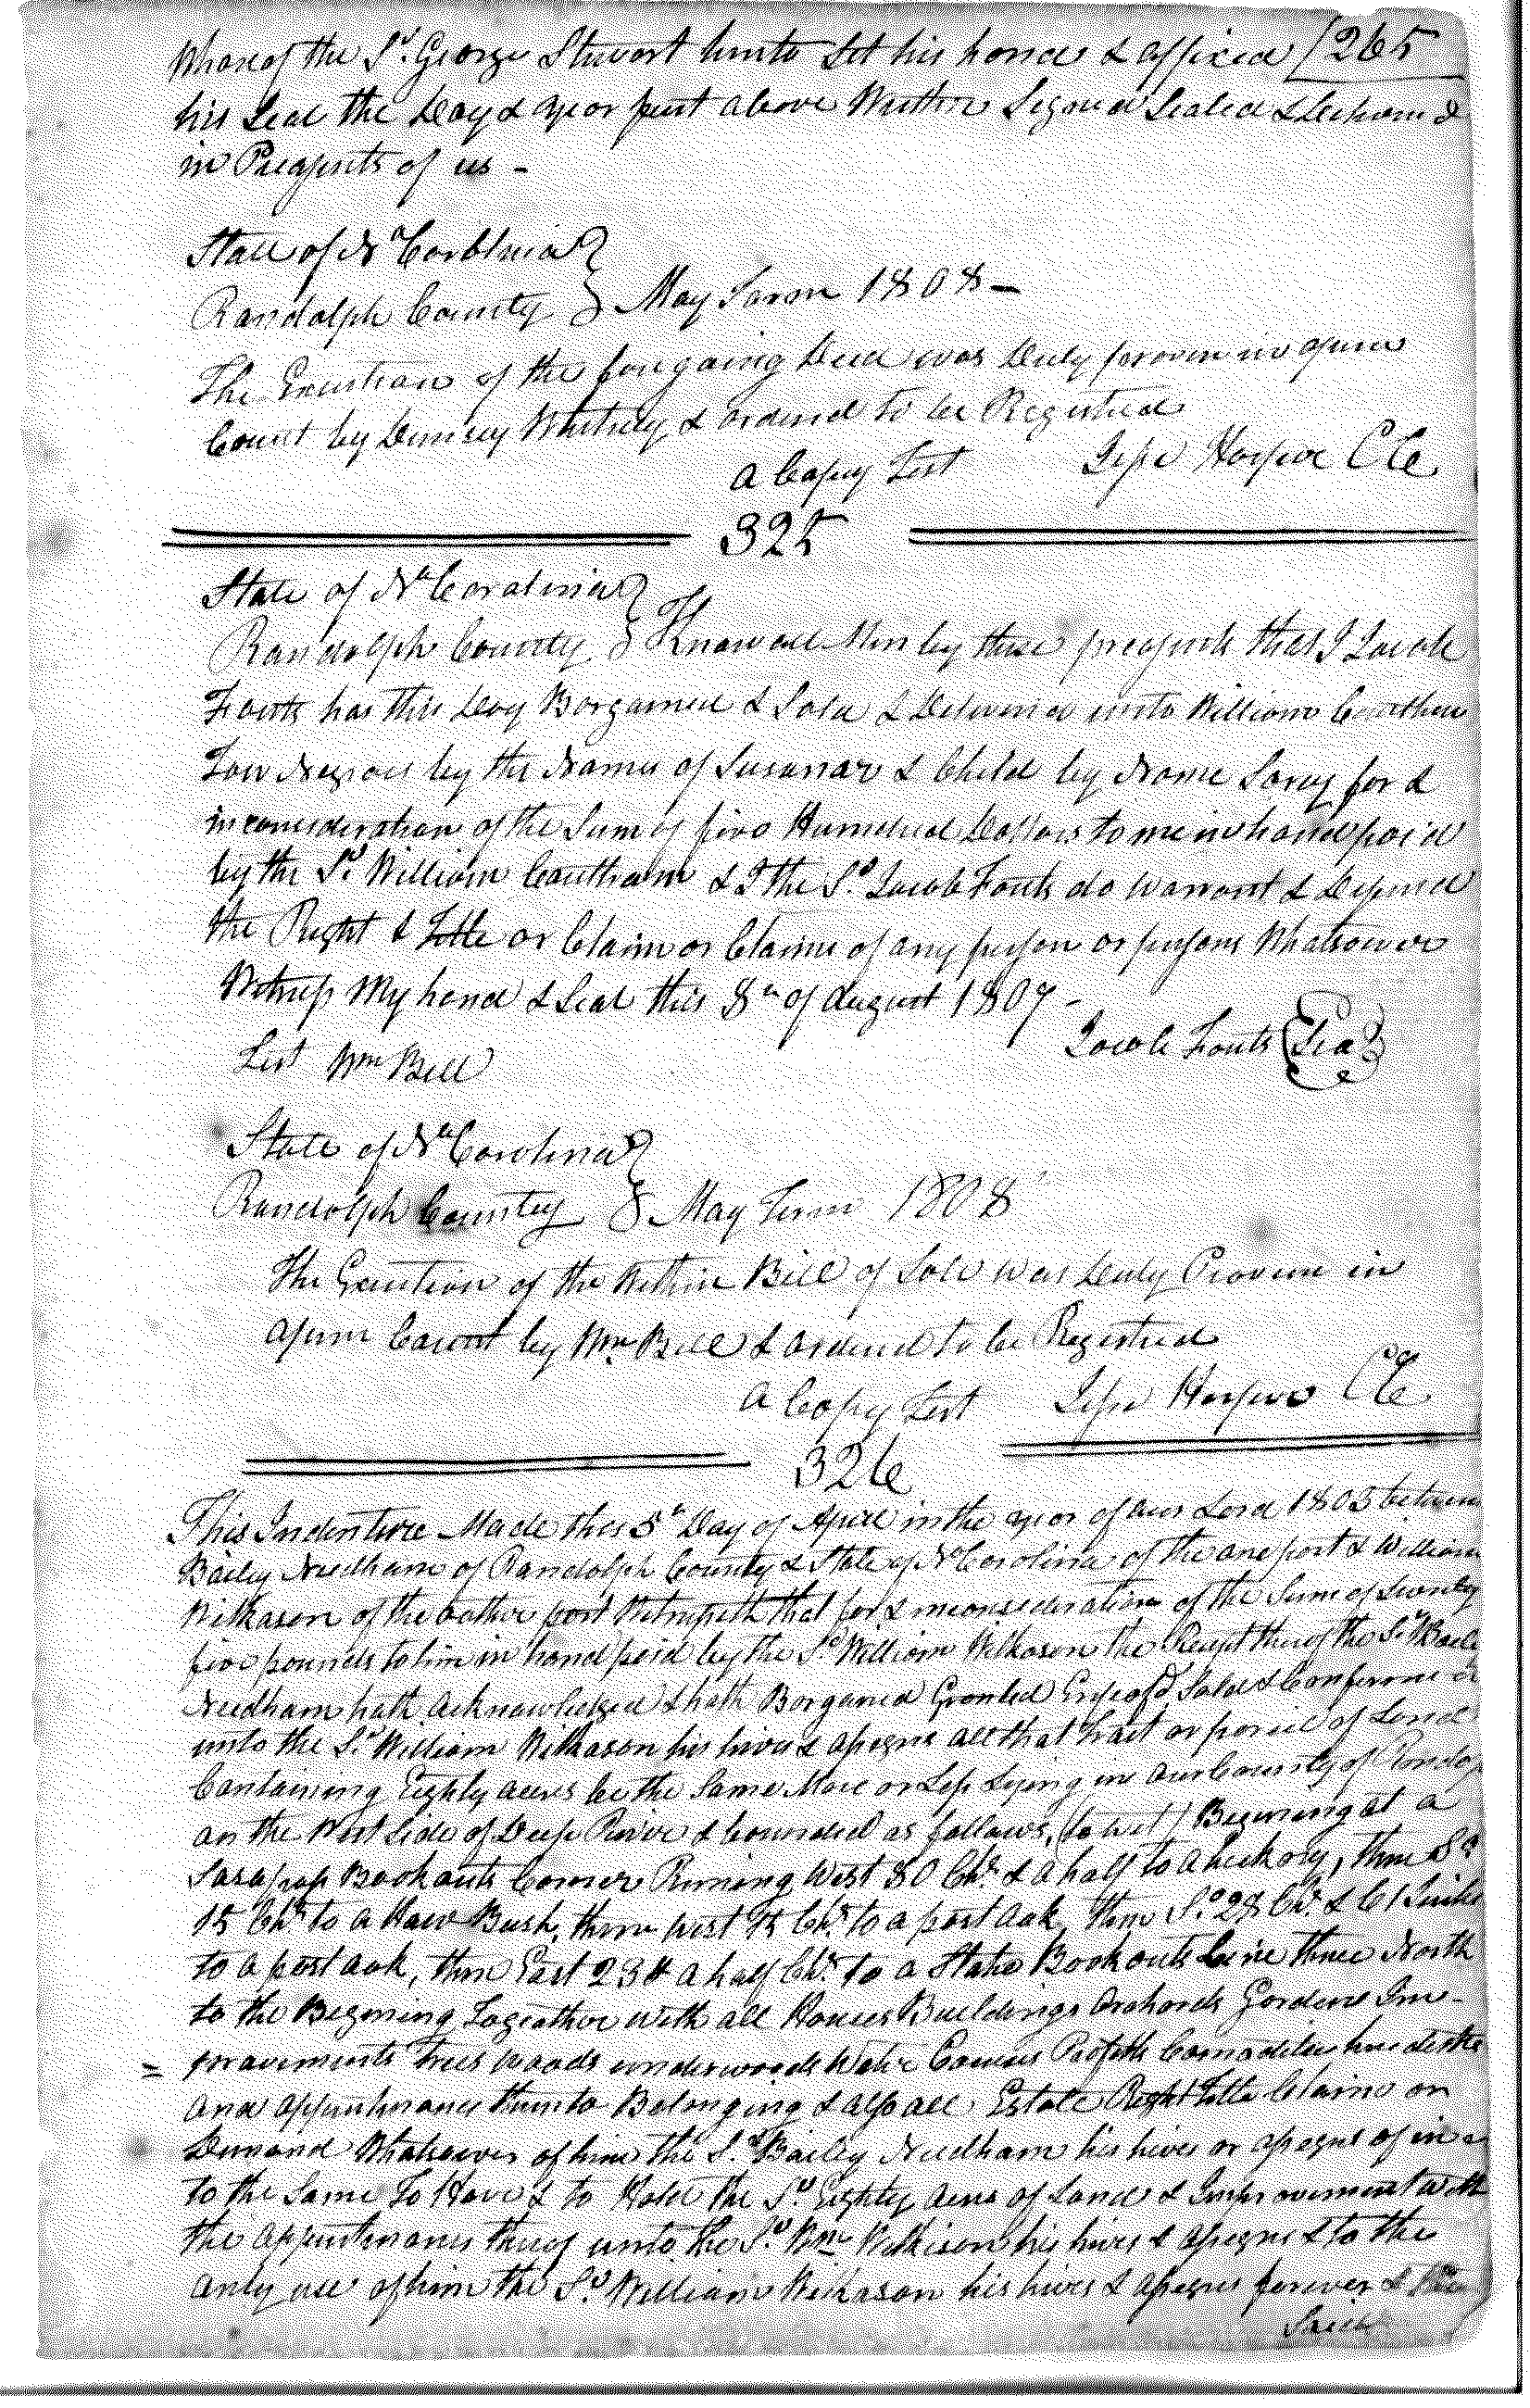 Whareof the Sd. George Stuvart hunto Set his hand & affixed 265
his Seal the Day & year furst above Written Signed Sealed & Deliverd
in Preasents of us -
State of No Carolinia
Randolph County } May Tarm 1808 -
The Execution of the foregoing Deed was Duly proven in open
Court by Dempsey Whitney & ordered to be Registred
a Copy Test Jesse Harper CC
325
State of No Caralinia
Randolph County } Know all Men by these presents that I Jacob
Fouts has this Day Bargained & Sold & Delivered unto William
Negroes by the Names of Susanar & Child by Name Saray for &
in consideration of the Sum of five Hundred Dollars to me in hand paid
by the Sd. William Cautharn & I the Sd. Jacob Fouts do warrant & Defend
the Right & Title or Claim or Claims of any person or persons Whatsoever
Witness My hand & Seal this 8th of August 1807 -
Test Wm Bell Jacob Fouts Seal
State of No Carolina
Randolph County } May Term 1808
The Execution of the Within Bill of Sale was Duly Proven in
open Court by Wm Bell & ordered to be Registred
a Copy Test Jesse Harper CC
326
This Indenture Made this 5th Day of April in the year of our Lord 1803 between
Bailey Needham of Randolph County & State of No Carolina of the one part & William
Wilkason of the other part Witnesseth that for & in consideration of the Sum of Seventy
five pounds to him in hand paid by the Sd William Wilkason the Receipt thereof the Sd Baily
Needham hath acknowledged & hath Bargained Granted Sold & Conferm
unto the Sd William Wilkason his hires & assigns all that tract or parcel of Land
Containing Eighty acres be the Same More or Less Lying in our County of Randolp
on the West Side of Deep River & bounded as follows, (to wit) Begining at a
Sasafrass Bookouts Corner Runing West 30 Chs. & a half to a hickory, then So
15 Chs. to a Haw Bush, then west 15 Chs. to a post oak, then So. 28 Chs. & 61 Links
to a post oak, then East 23 & a half Chs. to a Stake Bookouts Line thence North
to the Begining Togeather with all Houses Buildings Orchards Gardens Im-
= provements Trees woods underwoods Water Courses Profitts Comodities
and appurtenances thereunto Belonging & also all Estate Right Title Claim or
Demand Whatsoever of him the Sd. Bailey Needham his hires or assigns of in or
to the Same To Have & to Hold the Sd. Eighty acres of Land & Improvement with
the appurtenances thereof unto the Sd. Wm Wilkison his hires & assigns & to the
only use of him the Sd. William Wilkason his hires & assigns forever &
Said